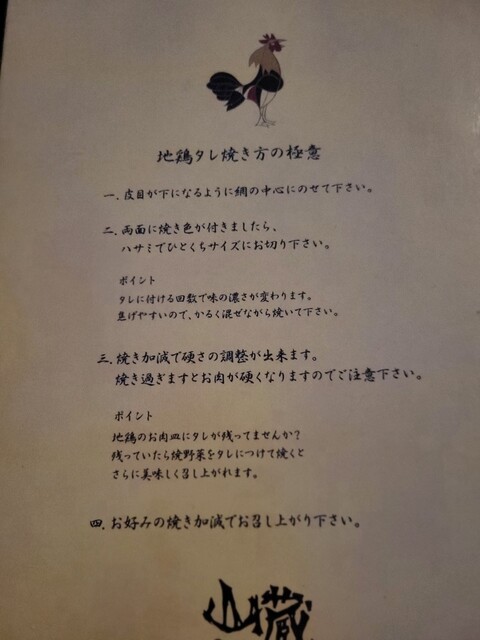 地鶏タレ焼き方の極意
一. 皮目が下になるように網の中心にのせて下さい。
二. 両面に焼き色が付きましたら、
ハサミでひとくちサイズにお切り下さい。
ポイント
タレに付ける回数で味の濃さが変わります。
焦げやすいので、かるく混ぜながら焼いて下さい。
三. 焼き加減で硬さの調整が出来ます。
焼き過ぎますとお肉が硬くなりますのでご注意下さい。
ポイント
地鶏のお肉皿にタレが残ってませんか？
残っていたら焼野菜をタレにつけて焼くと
さらに美味しく召し上がれます。
四. お好みの焼き加減でお召し上がり下さい。
山蔵